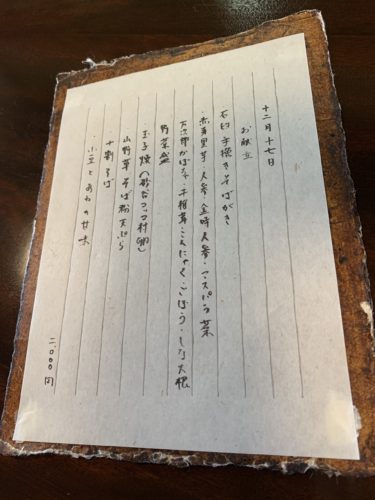 十二月 十七日
お献立
石臼 手挽きそばがき
・赤芽里芋 人参 金時人参・アスパラ菜
万次郎かぼちゃ・干椎茸 こんにゃく ごぼう・しな大根
野菜盛
玉子焼
山野草 そば粉 天ぷら
・十割そば
・小豆とあわの甘味
二、〇〇〇円